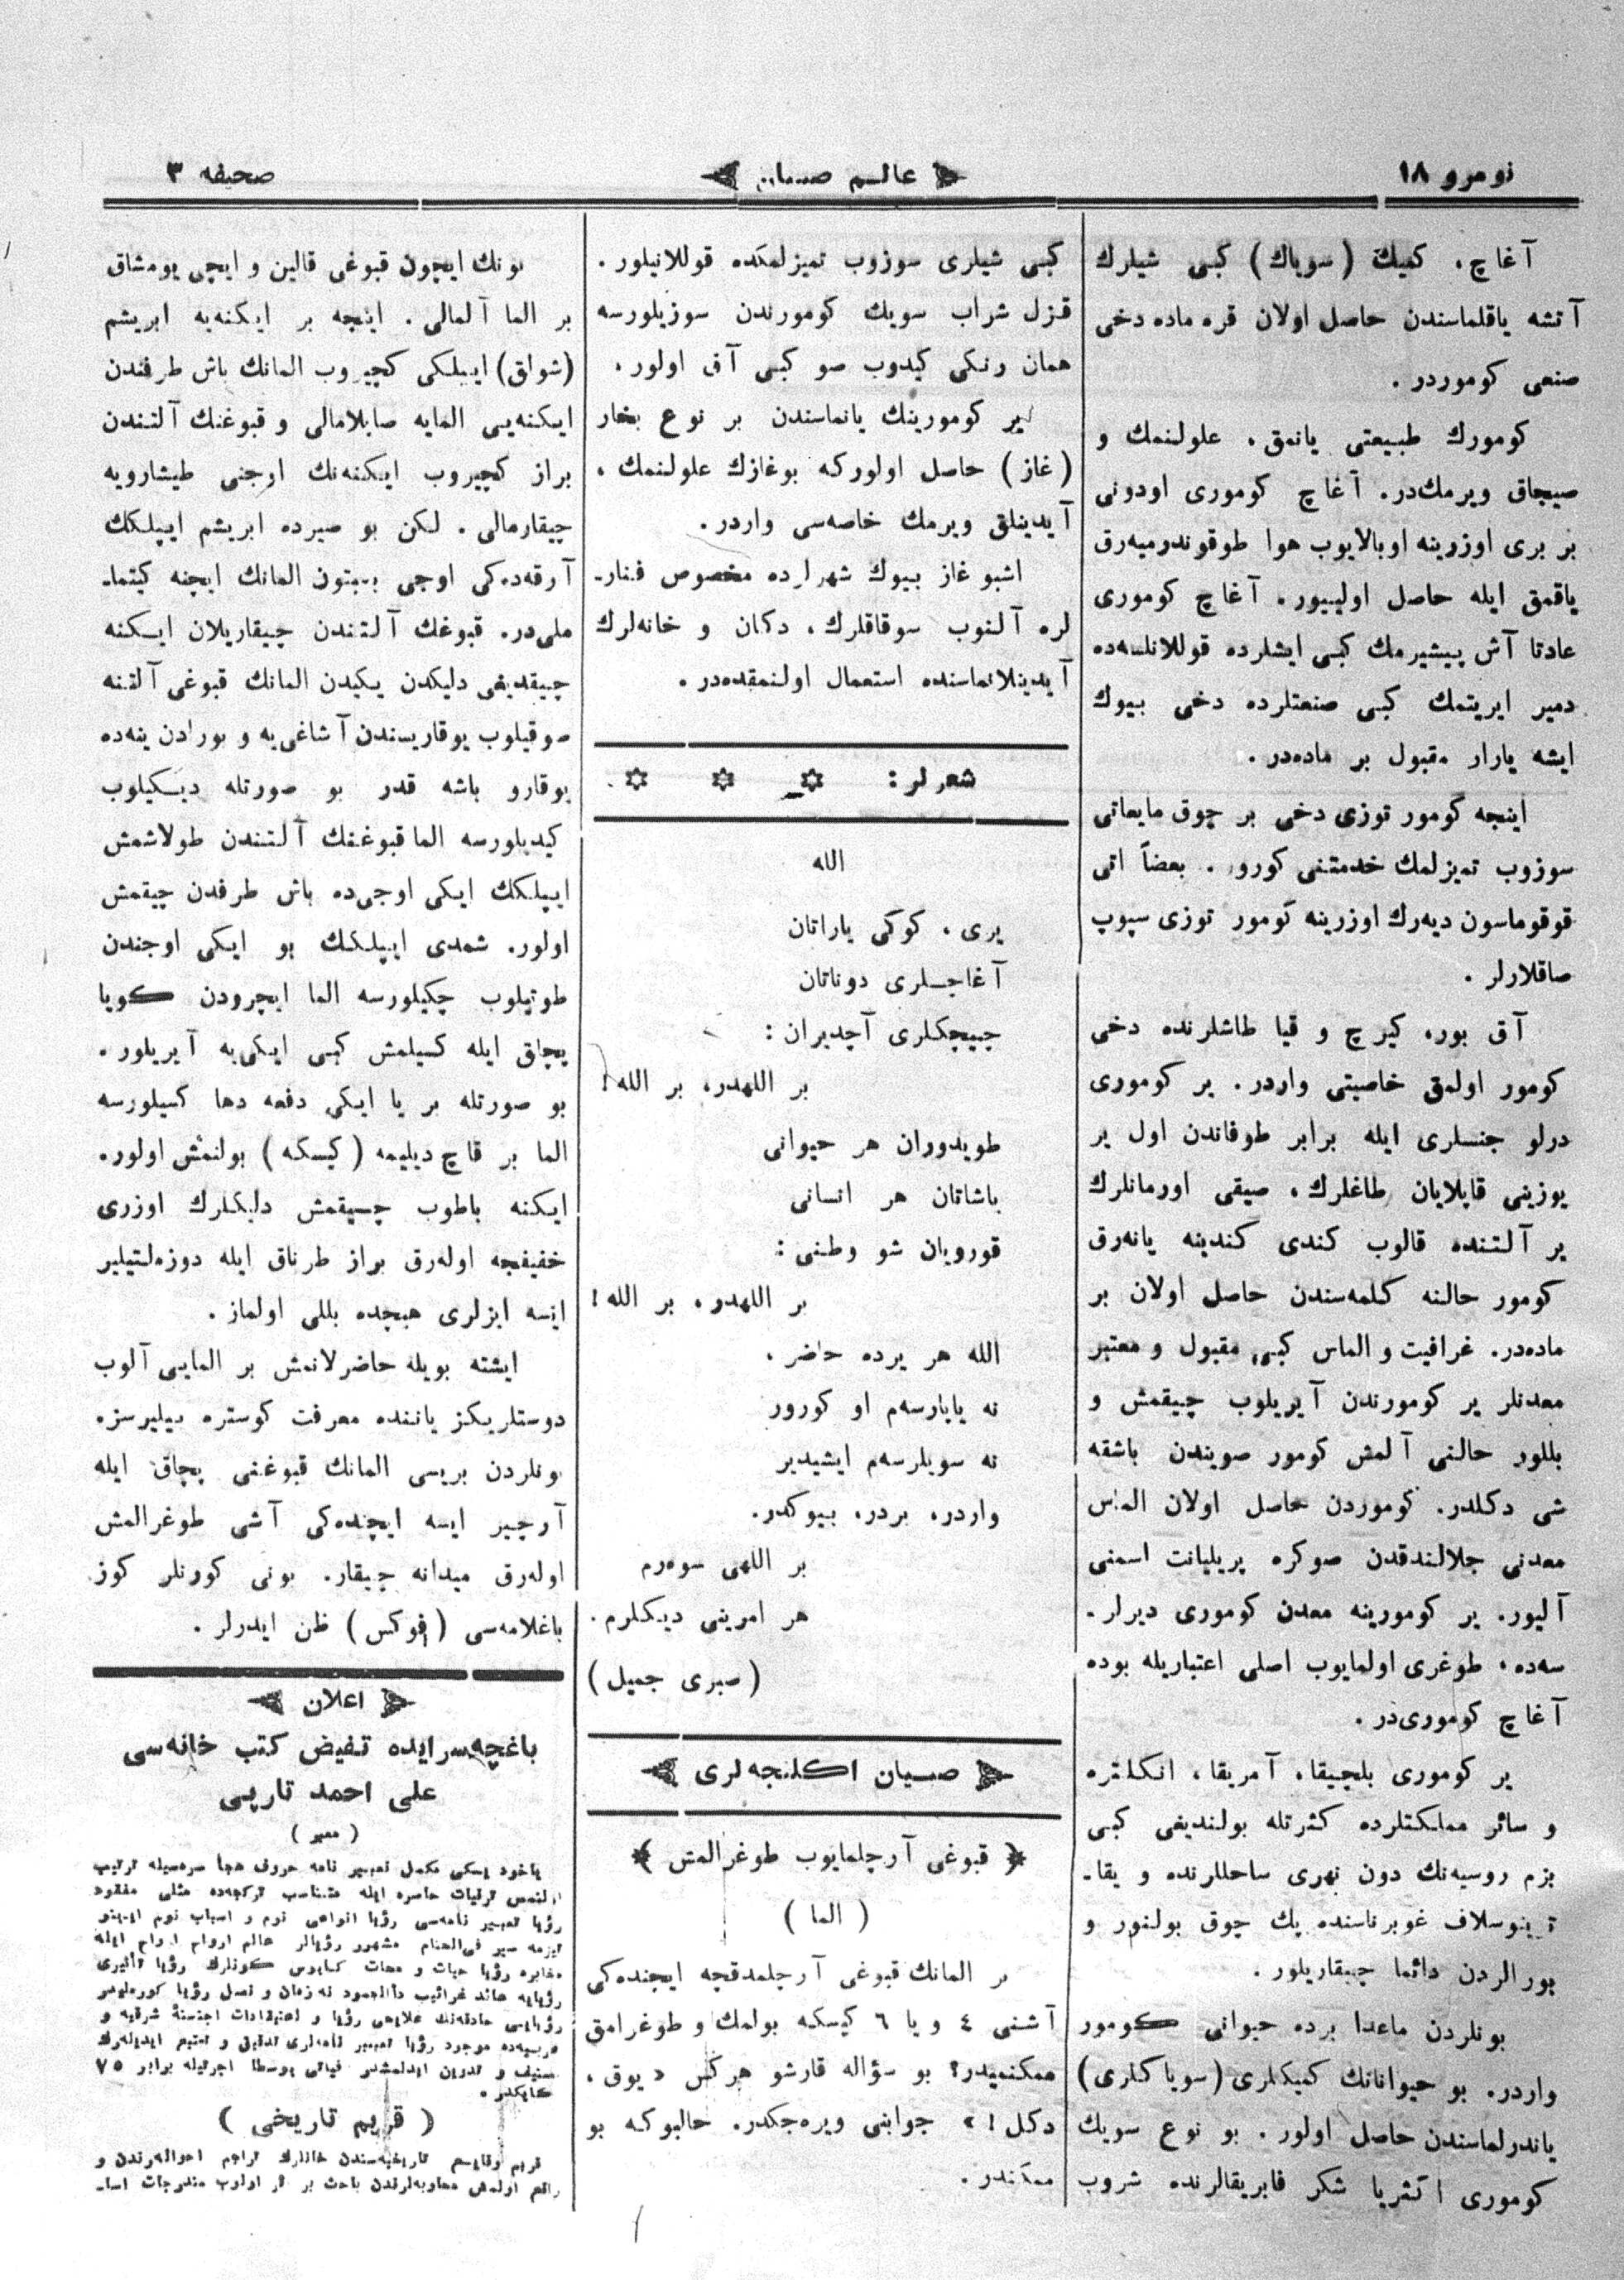 نومرو ١٨
عالم صبیان
صحیفه ٣
آغاچ، کمیك (سویاك) کبی شیلرك
آتشه یاقلماسندن حاصل اولان قره ماده دخی
صنعی کوموردر.
کومورك طبیعتی یانمق، علولنمك و
صیجاق ویرمك‌در. آغاچ کوموری اودونی
بر بری اوزرینه اوبالایوب هوا طوقوندرمیه‌رق
یاقمق ایله حاصل اولییور. آغاچ کوموری
عادتا آش پیشیرمك کبی ایشلرده قوللانلسه‌ده
دمیر ایریتمك کبی صنعتلرده دخی بیوك
ایشه یارار مقبول بر ماده‌در.
اینجه کومور توزی دخی بر چوق مایعاتی
سوزوب تمیزلمك خدمتنی کورور. بعضاً اتی
قوقوماسون دیه‌رك اوزرینه کومور توزی سپوب
صاقلارلر.
آق بور، کیرچ و قیا طاشلرنده دخی
کومور اولمق خاصیتی واردر. یر کوموری
درلو جنسلری ایله برابر طوفاندن اول یر
یوزینی قاپلایان طاغلرك، صیقی اورمانلرك
یر آلتنده قالوب کندی کندینه یانه‌رق
کومور حالنه کلمه‌سندن حاصل اولان بر
ماده‌در. غرافیت و الماس کبی مقبول و معتبر
معدنلر یر کومورندن آیریلوب چیقمش و
بللور حالنی آلمش کومور صویندن باشقه
شی دکلدر. کوموردن حاصل اولان الماس
معدنی جلالندقدن صوکره پریلیانت اسمنی
آلیور. یر کومورینه معدن کوموری دیرلر.
سه‌ده، طوغری اولمایوب اصلی اعتباریله بوده
آغاچ کوموری‌در.
یر کوموری بلچیقا، آمریقا، انکلتره
و سائر مملکتلرده کثرتله بولندیغی کبی
بزم روسیه‌نك دون نهری ساحللرنده و یقا-
ترینوسلاف غوبرناسنده پك چوق بولنور و
بورالردن دائما چیقاریلور.
بونلردن ماعدا برده حیوانی کومور
واردر. بو حیواناتك کمیکلری (سویاکلری)
یاندرلماسندن حاصل اولور. بو نوع سویك
کوموری اکثریا شکر فابریقالرنده شروب
کبی شیلری سوزوب تمیزلمکده قوللانیلور.
قزل شراب سویك کومورندن سوزیلورسه
همان رنکی کیدوب صو کبی آق اولور.
یر کومورینك یانماسندن بر نوع بخار
(غاز) حاصل اولورکه بوغازك علولنمك،
آیدینلق ویرمك خاصه‌سی واردر.
اشبو غاز بیوك شهرلرده مخصوص فنار-
لره آلنوب سوقاقلرك، دکان و خانه‌لرك
آیدینلانماسنده استعمال اولنمقده‌در.
شعرلر:
الله
یری، کوکی یاراتان
آغاجلری دوناتان
چیچکلری آچدیران:
بر اللهدر، بر الله!
طویدوران هر حیوانی
یاشاتان هر انسانی
قورویان شو وطنی:
بر اللهدر، بر الله!
الله هر یرده حاضر.
نه یاپارسه‌م او کورور
نه سویلرسه‌م ایشیدیر
واردر، بردر، بیوکدر.
بر اللهی سوه‌رم
هر امرینی دیکلرم.
(صبری جمیل)
صبیان اکلنجه‌لری
قبوغی آرچلمایوب طوغرالمش
(الما)
بر المانك قبوغی آرچلمدقچه ایچنده‌کی
آشنی ٤ و یا ٦ کیسکه بولمك و طوغرامق
ممکنمیدر؟ بو سؤاله قارشو هرکس «یوق،
دکل!» جوابنی ویره‌جکدر. حالبوکه بو
ممکندر.
بونك ایچون قبوغی قالین و ایچی یومشاق
بر الما آلمالی. اینجه بر ایکنه‌یه ابریشم
(شواق) ایپلکی کچیروب المانك باش طرفندن
ایکنه‌یی المایه صاپلامالی و قبوغنك آلتندن
براز کچیروب ایکنه‌نك اوجنی طیشارویه
چیقارمالی. لکن بو صیرده ابریشم ایپلکك
آرقه‌ده‌کی اوجی بتون المانك ایچنه کیتما-
ملی‌در. قبوغك آلتندن چیقاریلان ایکنه
چیقدیغی دلیکدن یکیدن المانك قبوغی آلتنه
صوقیلوب یوقاریسندن آشاغی‌یه و بورادن ینه‌ده
یوقارو باشه قدر بو صورتله دیکیلوب
کیدیلورسه الما قبوغنك آلتندن طولاشمش
ایپلکك ایکی اوجی‌ده باش طرفدن چیقمش
اولور. شمدی ایپلکك بو ایکی اوجندن
طوتیلوب چکیلورسه الما ایچرودن کویا
پچاق ایله کسیلمش کبی ایکی‌یه آیریلور.
بو صورتله بر یا ایکی دفعه دها کسیلورسه
الما بر قاچ دیلیمه (کیسکه) بولنمش اولور.
ایکنه باطوب چیقمش دلیکلرك اوزری
خفیفجه اوله‌رق براز طرناق ایله دوزه‌لتیلیر
ایسه ایزلری هیچده بللی اولماز.
ایشته بویله حاضرلانمش بر المایی آلوب
دوستلریکز یاننده معرفت کوستره بیلیرسز.
بونلردن بریسی المانك قبوغنی پچاق ایله
آرچیر ایسه ایچنده‌کی آشی طوغرالمش
اوله‌رق میدانه چیقار. بونی کورنلر کوز
باغلامه‌سی (فوکس) ظن ایدرلر.
اعلان
باغچه‌سرایده تفیض کتب خانه‌سی
علی احمد تارپی
(معبر)
یاخود یسکی مکمل تعبیر نامه حروف هجأ سره‌سیله ترتیب
اولنمش ترقیات حاضره ایله متناسب ترکجه‌ده مثلی مفقود
رؤیا تعبیر نامه‌سی رؤیا انواعی نوم و اسباب نوم
سیر فی‌المنام مشهور رؤیالر عالم ارواح ارواح ایله
مخابره رؤیا حیات و ممات کابوس کونلرك رؤیا تأثیری
رؤیایه عائد غرائیب
و اعتقادات اجنسهٔ شرقیه و
غربیه‌ده موجود رؤیا تعبیر نامه‌لری تدقیق و تمتیع ایدیله‌رك
تصنیف و تدوین ایدلمشدر فیاتی پوسطا اجرتیله برابر ٧٥
کاپکدر.
(قریم تاریخی)
قریم وقایع تاریخیه‌سندن خانلرك تراجم احواله‌رندن و
واقع اولمش محاربه‌لرندن باحث بر اثر اولوب مندرجات اسا-